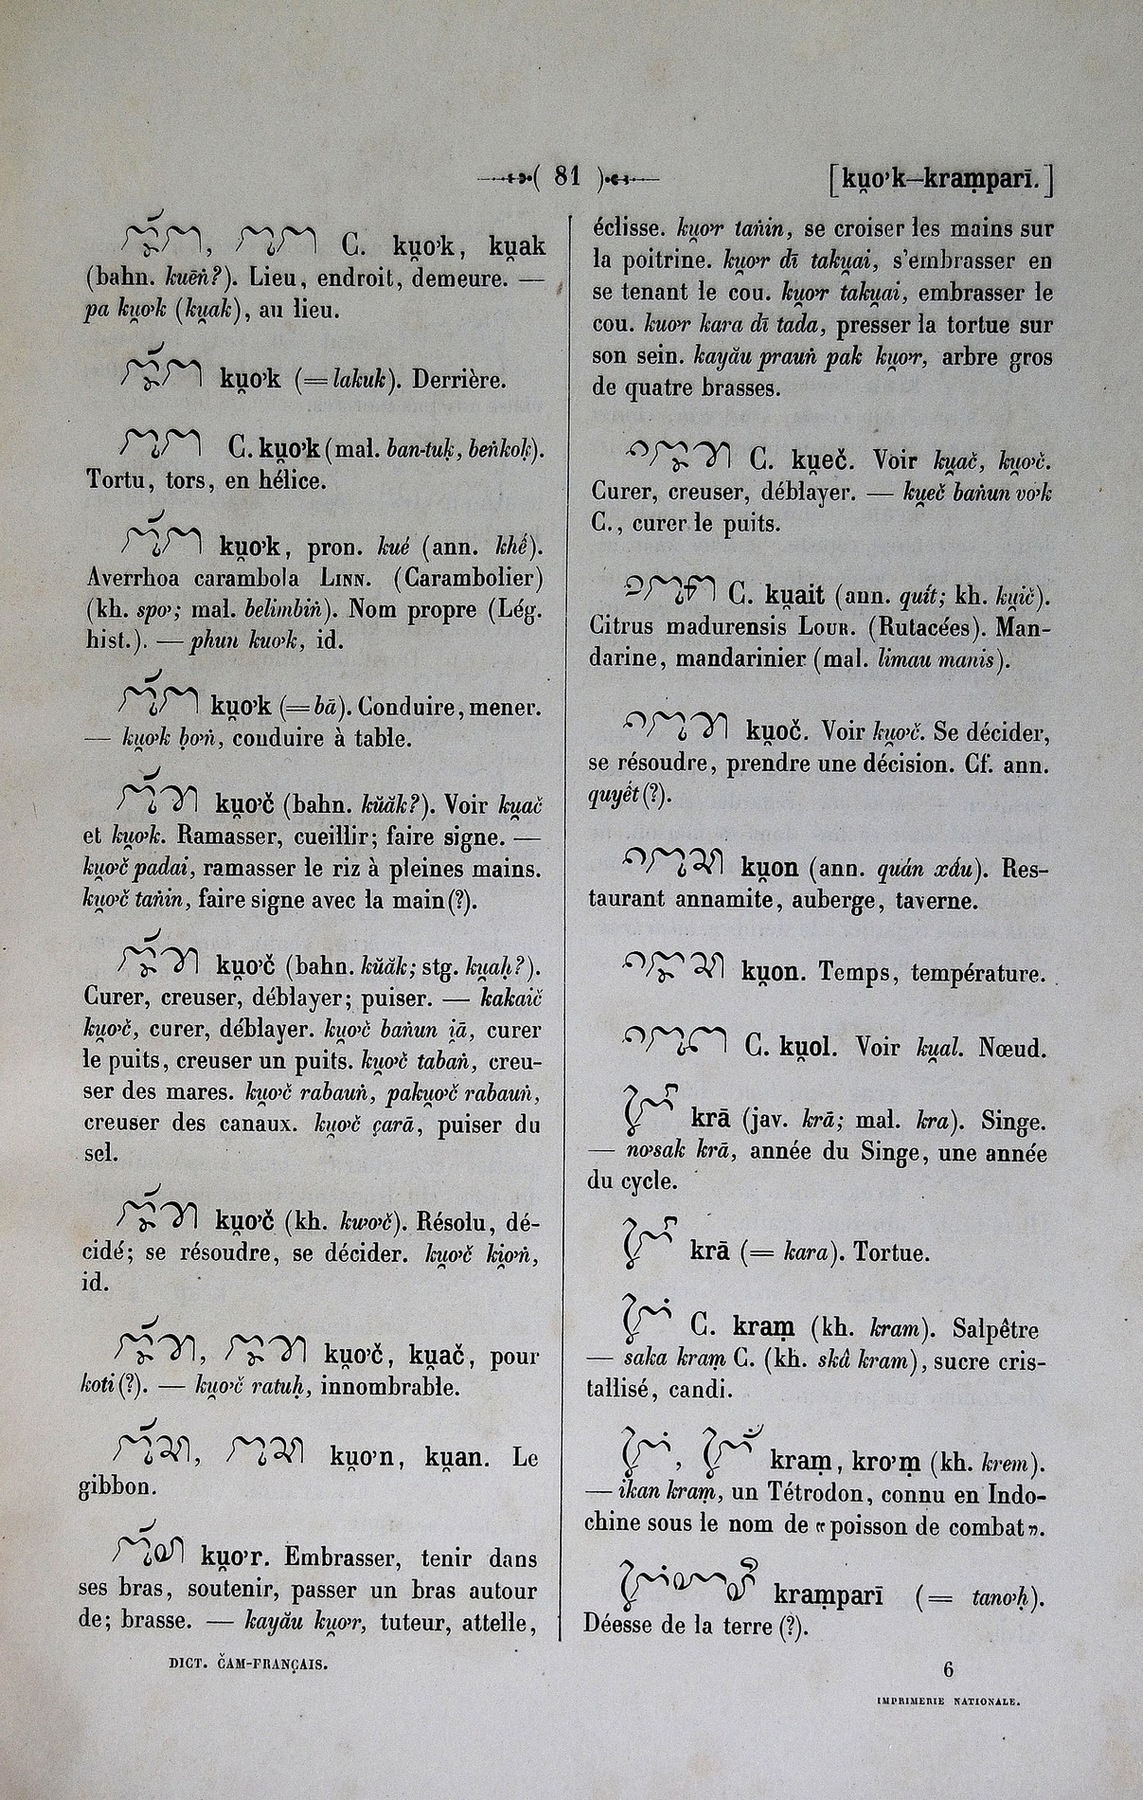 81
[ku̯ơk–kraṃparī.]
C. ku̯ơk, ku̯ak
(bahn. kuēṅ?). Lieu, endroit, demeure. —
pa ku̯ơk (ku̯ak), au lieu.
ku̯ơk (= lakuk). Derrière.
C. ku̯ơk (mal. ban-tuḳ, beṅkoḳ).
Tortu, tors, en hélice.
ku̯ơk, pron. kué (ann. khế).
Averrhoa carambola Linn. (Carambolier)
(kh. spơ; mal. belimbiṅ). Nom propre (Lég.
hist.). — phun kuơk, id.
ku̯ơk (= bā). Conduire, mener.
— ku̯ơk ḅơṅ, conduire à table.
ku̯ơč (bahn. kŭăk?). Voir ku̯ač
et ku̯ơk. Ramasser, cueillir; faire signe. —
ku̯ơč padai, ramasser le riz à pleines mains.
ku̯ơč taṅin, faire signe avec la main (?).
ku̯ơč (bahn. kŭăk; stg. ku̯aḥ?).
Curer, creuser, déblayer; puiser. — kakaič
ku̯ơč, curer, déblayer. ku̯ơč baṅun i̯ā, curer
le puits, creuser un puits. ku̯ơč tabaṅ, creu-
ser des mares. ku̯ơč rabauṅ, paku̯ơč rabauṅ,
creuser des canaux. ku̯ơč çarā, puiser du
sel.
ku̯ơč (kh. kwơč). Résolu, dé-
cidé; se résoudre, se décider. ku̯ơč ki̯ơṅ,
id.
ku̯ơč, ku̯ač, pour
koti (?). — ku̯ơč ratuḥ, innombrable.
ku̯ơn, ku̯an. Le
gibbon.
ku̯ơr. Embrasser, tenir dans
ses bras, soutenir, passer un bras autour
de; brasse. — kayău ku̯ơr, tuteur, attelle,
DICT. ČAM-FRANÇAIS.
éclisse. ku̯ơr taṅin, se croiser les mains sur
la poitrine. ku̯ơr dī taku̯ai, s'embrasser en
se tenant le cou. ku̯ơr taku̯ai, embrasser le
cou. kuơr kara dī tada, presser la tortue sur
son sein. kayău prauṅ pak ku̯ơr, arbre gros
de quatre brasses.
C. ku̯eč. Voir ku̯ač, ku̯ơč.
Curer, creuser, déblayer. — ku̯eč baṅun vơk
C., curer le puits.
C. ku̯ait (ann. quít; kh. ku̯ič).
Citrus madurensis Lour. (Rutacées). Man-
darine, mandarinier (mal. limau manis).
ku̯oč. Voir ku̯ơč. Se décider,
se résoudre, prendre une décision. Cf. ann.
quyết (?).
ku̯on (ann. quán xấu). Res-
taurant annamite, auberge, taverne.
ku̯on. Temps, température.
C. ku̯ol. Voir ku̯al. Nœud.
krā (jav. krā; mal. kra). Singe.
— nơsak krā, année du Singe, une année
du cycle.
krā (= kara). Tortue.
C. kraṃ (kh. kram). Salpêtre
— saka kraṃ C. (kh. skâ kram), sucre cris-
tallisé, candi.
kraṃ, krơṃ (kh. krem).
— ikan kraṃ, un Tétrodon, connu en Indo-
chine sous le nom de « poisson de combat ».
kraṃparī (= tanơḥ).
Déesse de la terre (?).
6
IMPRIMERIE NATIONALE.